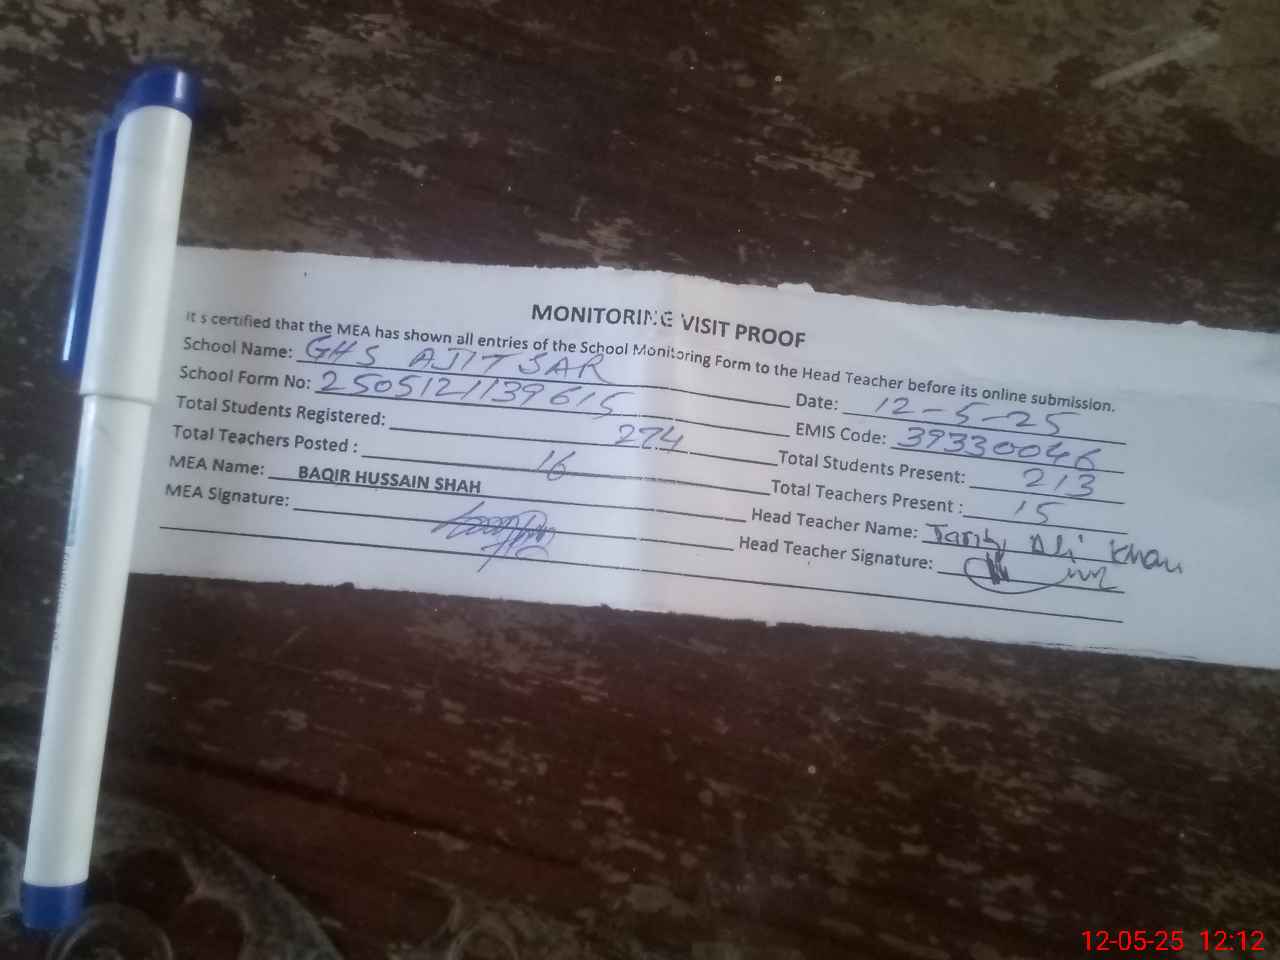 MONITORING VISIT PROOF
It s certified that the MEA has shown all entries of the School Monitoring Form to the Head Teacher before its online submission.
School Name: GHS AJIT SAR Date: 12-5-25
School Form No: 2505121139615 EMIS Code: 39330046
Total Students Registered: 274 Total Students Present: 213
Total Teachers Posted : 16 Total Teachers Present : 15
MEA Name: BAQIR HUSSAIN SHAH Head Teacher Name: Ali Khan
MEA Signature: Head Teacher Signature:
12-05-25 12:12